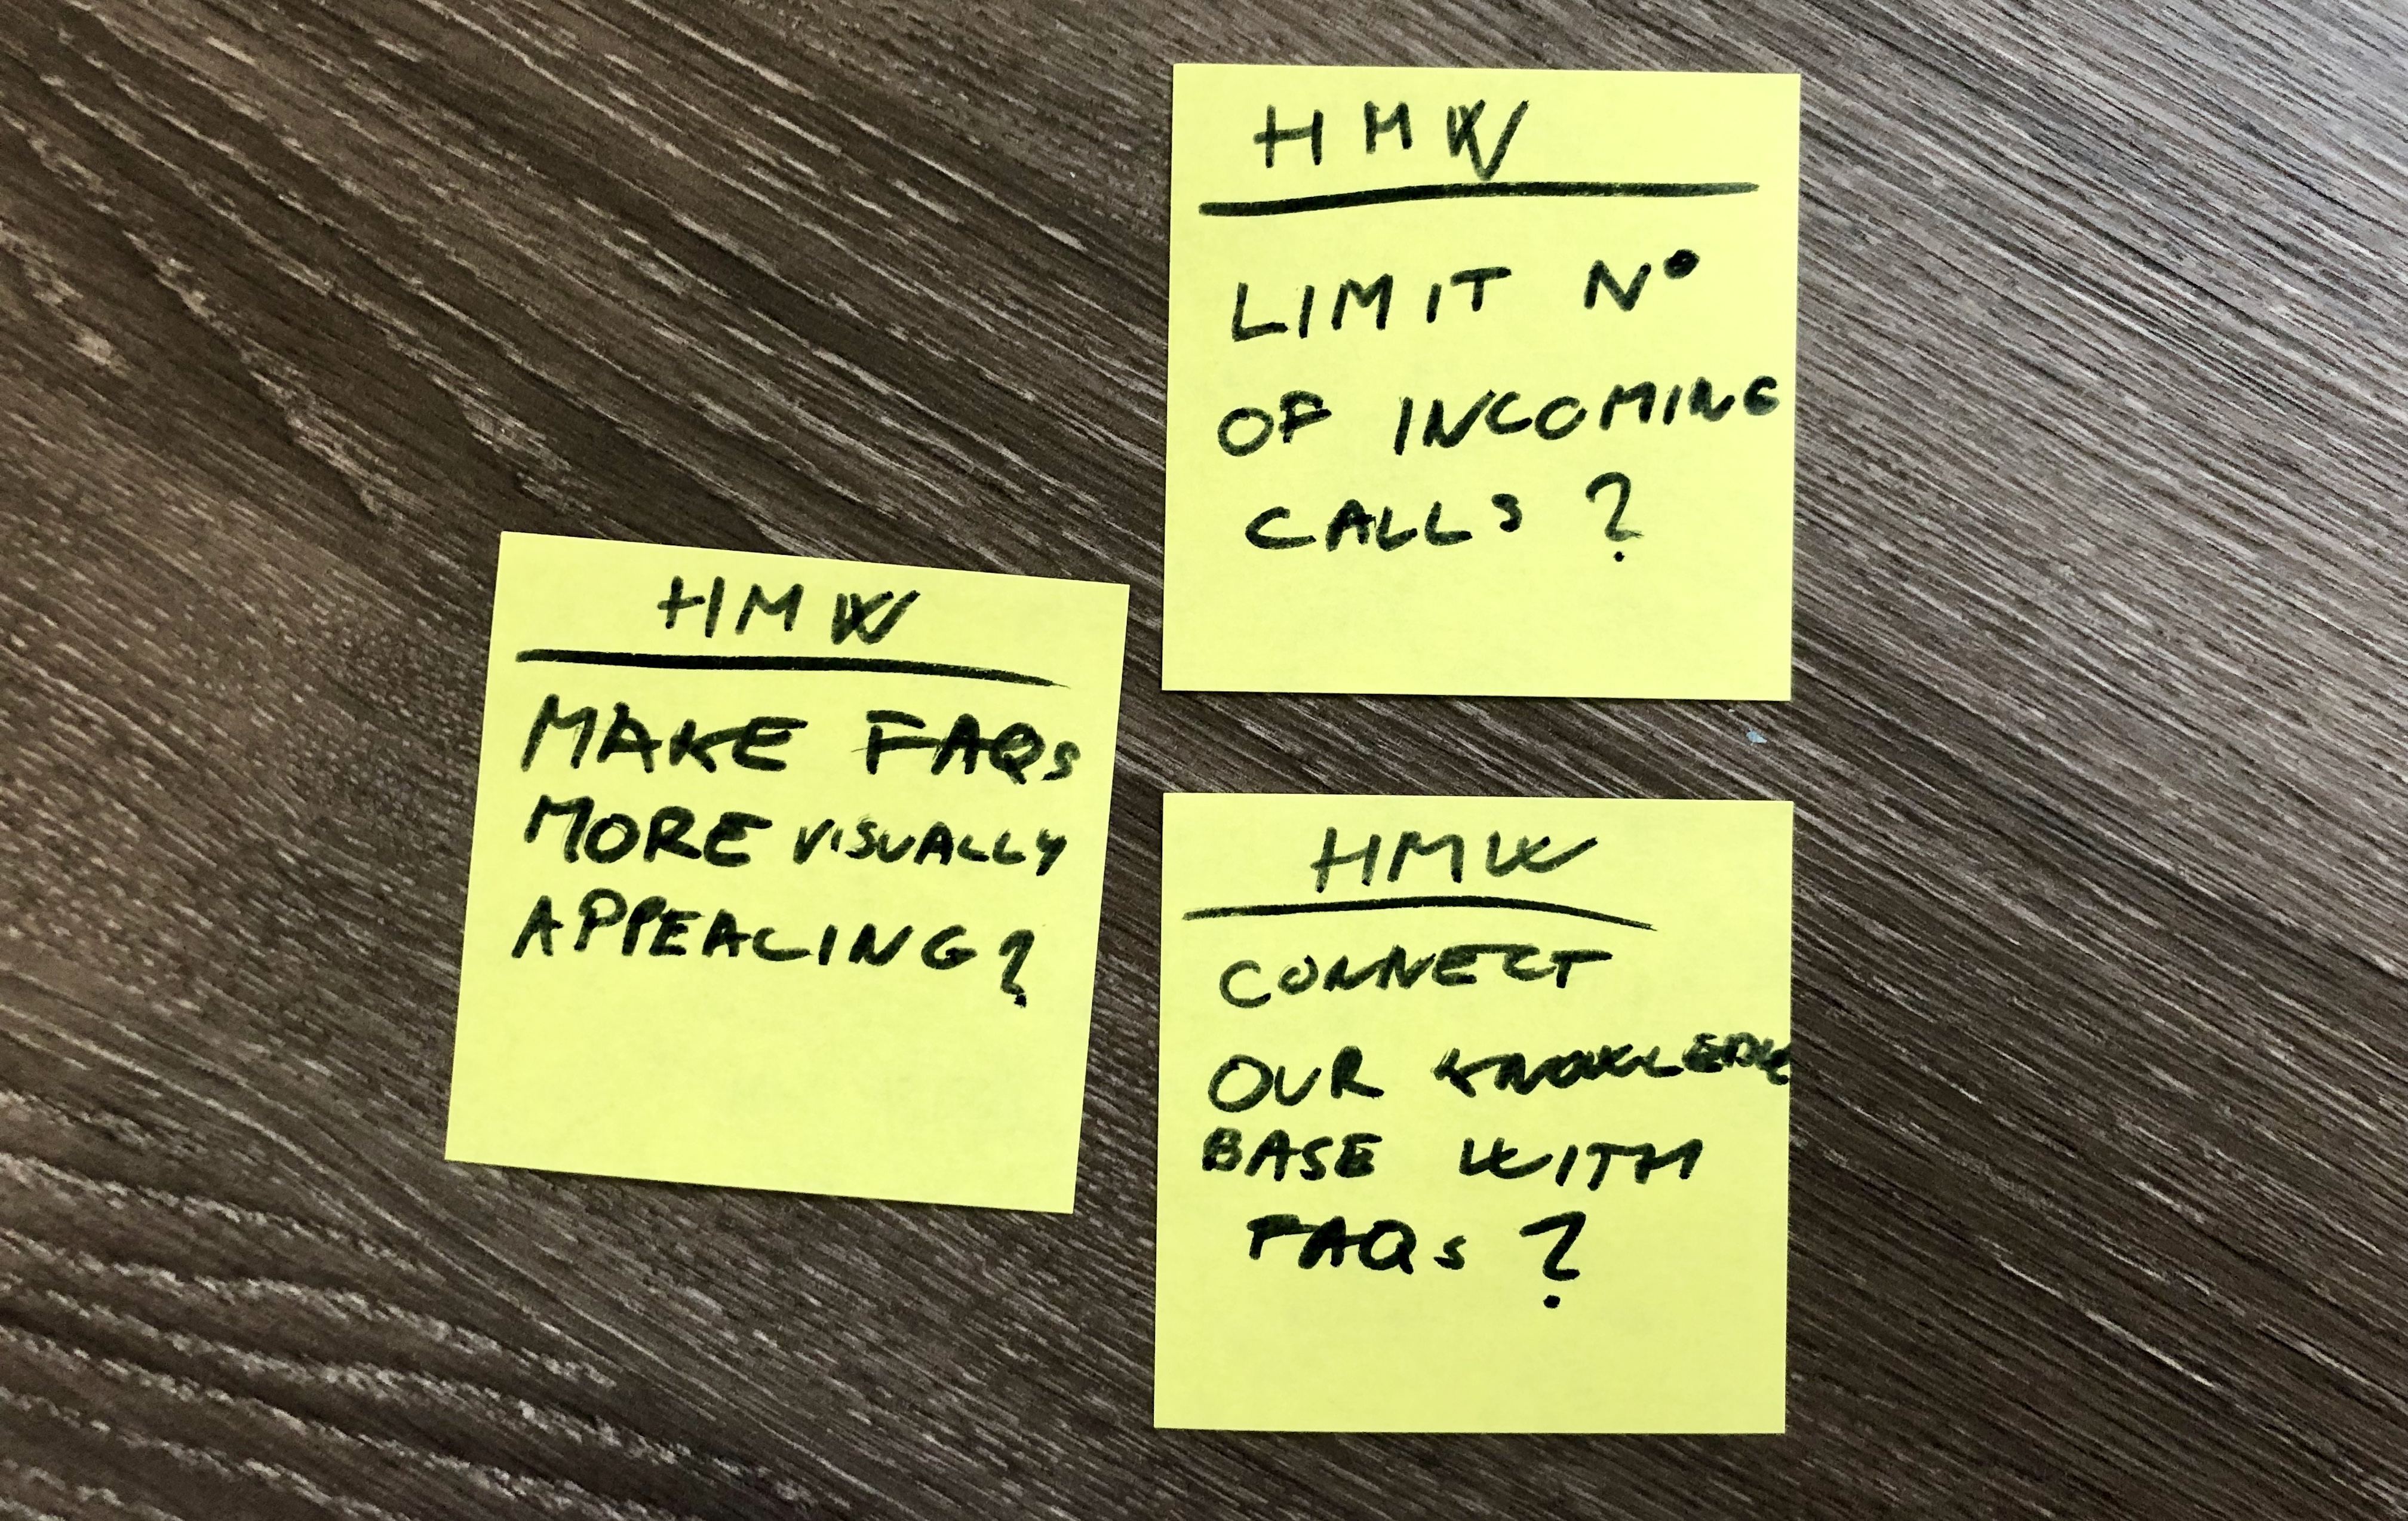 HMW
LIMIT N°
OF INCOMING
CALLS ?
HMW
MAKE FAQs
MORE VISUALLY
APPEALING?
HMW
CONNECT
OUR KNOWLEDGE
BASE WITH
FAQs ?